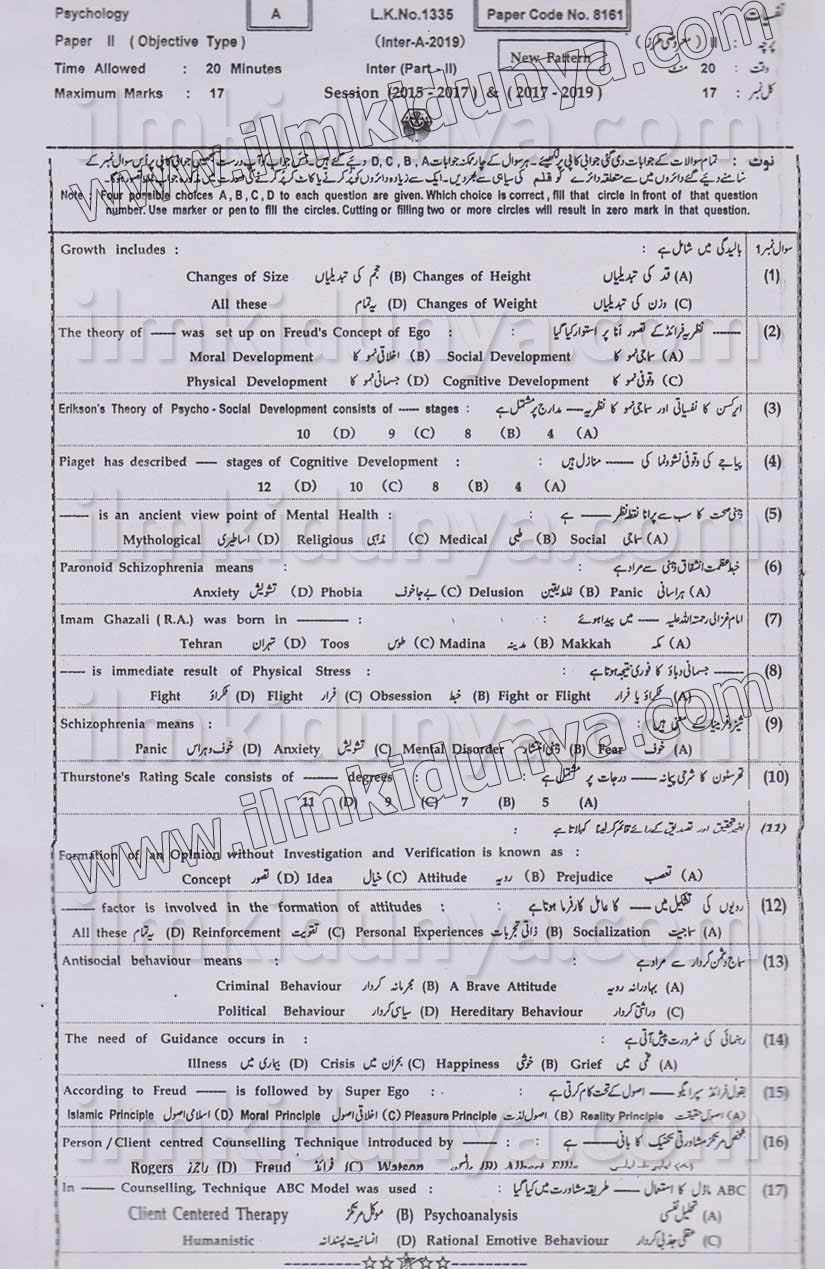 Psychology A L.K.No.1335 Paper Code No. 8161 نفسیات
Paper II ( Objective Type ) (Inter-A-2019) پرچہ : II ( معروضی طرز )
New Pattern
Time Allowed : 20 Minutes Inter (Part - II) وقت : 20 منٹ
Maximum Marks : 17 Session (2015 - 2017) & (2017 - 2019) کل نمبر : 17
نوٹ : تمام سوالات کے جوابات دی گئی جوابی کاپی پر لکھیئے۔ ہر سوال کے چار ممکنہ جوابات D , C , B , A دیئے گئے ہیں۔ جس جواب کو آپ درست سمجھیں جوابی کاپی پر اس سوال نمبر کے
سامنے دیئے گئے دائروں میں سے متعلقہ دائرے کو قلم کی سیاہی سے بھر دیں۔ ایک سے زیادہ دائروں کو پُر کرنے یا کاٹ کر پُر کرنے کی صورت میں مذکورہ جواب غلط تصور ہوگا۔
Note : Four possible choices A , B , C , D to each question are given. Which choice is correct , fill that circle in front of that question
number. Use marker or pen to fill the circles. Cutting or filling two or more circles will result in zero mark in that question.
Growth includes : بالیدگی میں شامل ہے : سوال نمبر 1
Changes of Size حجم کی تبدیلیاں (B) Changes of Height قد کی تبدیلیاں (A) (1)
All these یہ تمام (D) Changes of Weight وزن کی تبدیلیاں (C)
The theory of —— was set up on Freud's Concept of Ego : —— نظریہ فرائڈ کے تصور انا پر استوار کیا گیا : (2)
Moral Development اخلاقی نمو کا (B) Social Development سماجی نمو کا (A)
Physical Development جسمانی نمو کا (D) Cognitive Development وقوفی نمو کا (C)
Erikson's Theory of Psycho - Social Development consists of —— stages : ایرکسن کا نفسیاتی اور سماجی نمو کا نظریہ —— مدارج پر مشتمل ہے : (3)
10 (D) 9 (C) 8 (B) 4 (A)
Piaget has described —— stages of Cognitive Development : پیاجے کی وقوفی نشوونما کی —— منازل ہیں : (4)
12 (D) 10 (C) 8 (B) 4 (A)
—— is an ancient view point of Mental Health : ذہنی صحت کا سب سے پرانا نقطہ نظر —— ہے : (5)
Mythological اساطیری (D) Religious مذہبی (C) Medical طبی (B) Social سماجی (A)
Paronoid Schizophrenia means : خبط عظمت انشقاق ذہنی سے مراد ہے : (6)
Anxiety تشویش (D) Phobia بے جا خوف (C) Delusion غلط یقین (B) Panic ہراسانی (A)
Imam Ghazali (R.A.) was born in ——— : امام غزالی رحمتہ اللہ علیہ —— میں پیدا ہوئے : (7)
Tehran تہران (D) Toos طوس (C) Madina مدینہ (B) Makkah مکہ (A)
—— is immediate result of Physical Stress : —— جسمانی دباؤ کا فوری نتیجہ ہوتا ہے : (8)
Fight ٹکراؤ (D) Flight فرار (C) Obsession خبط (B) Fight or Flight ٹکراؤ یا فرار (A)
Schizophrenia means : شیزوفرینیا کے معنی ہیں : (9)
Panic خوف و ہراس (D) Anxiety تشویش (C) Mental Disorder ذہنی انتشار (B) Fear خوف (A)
Thurstone's Rating Scale consists of —— degrees : تھرسٹون کا شرحی پیمانہ —— درجات پر مشتمل ہے : (10)
11 (D) 9 (C) 7 (B) 5 (A)
بغیر تحقیق اور تصدیق کے رائے قائم کر لینا کہلاتا ہے : (11)
Formation of an Opinion without Investigation and Verification is known as :
Concept تصور (D) Idea خیال (C) Attitude رویہ (B) Prejudice تعصب (A)
—— factor is involved in the formation of attitudes : رویوں کی تشکیل میں —— کا عامل کارفرما ہوتا ہے : (12)
All these یہ تمام (D) Reinforcement تقویت (C) Personal Experiences ذاتی تجربات (B) Socialization سماجیت (A)
Antisocial behaviour means : سماج دشمن کردار سے مراد ہے : (13)
Criminal Behaviour مجرمانہ کردار (B) A Brave Attitude بہادرانہ رویہ (A)
Political Behaviour سیاسی کردار (D) Hereditary Behaviour وراثتی کردار (C)
The need of Guidance occurs in : رہنمائی کی ضرورت پیش آتی ہے : (14)
Illness بیماری میں (D) Crisis بحران میں (C) Happiness خوشی (B) Grief غمی میں (A)
According to Freud —— is followed by Super Ego : بقول فرائڈ سپر ایگو —— اصول کے تحت کام کرتی ہے : (15)
Islamic Principle اسلامی اصول (D) Moral Principle اخلاقی اصول (C) Pleasure Principle اصول لذت (B) Reality Principle اصول حقیقت (A)
Person / Client centred Counselling Technique introduced by —— : شخص مرتکز مشاورتی تکنیک کا بانی —— ہے : (16)
Rogers راجرز (D) Freud فرائڈ (C) Watson واٹسن (B) Albert Ellis (A)
In —— Counselling, Technique ABC Model was used : ABC ماڈل کا استعمال —— طریقہ مشاورت میں کیا گیا : (17)
Client Centered Therapy موکل مرتکز (B) Psychoanalysis تحلیل نفسی (A)
Humanistic انسانیت پسندانہ (D) Rational Emotive Behaviour عقلی جذبی کردار (C)
www.ilmkidunya.com
www.ilmkidunya.com
ilmkidunya.com
ilmkidunya.com
ilmkidunya.com
ilmkidunya.com
ilmkidunya.com
ilmkidunya.com